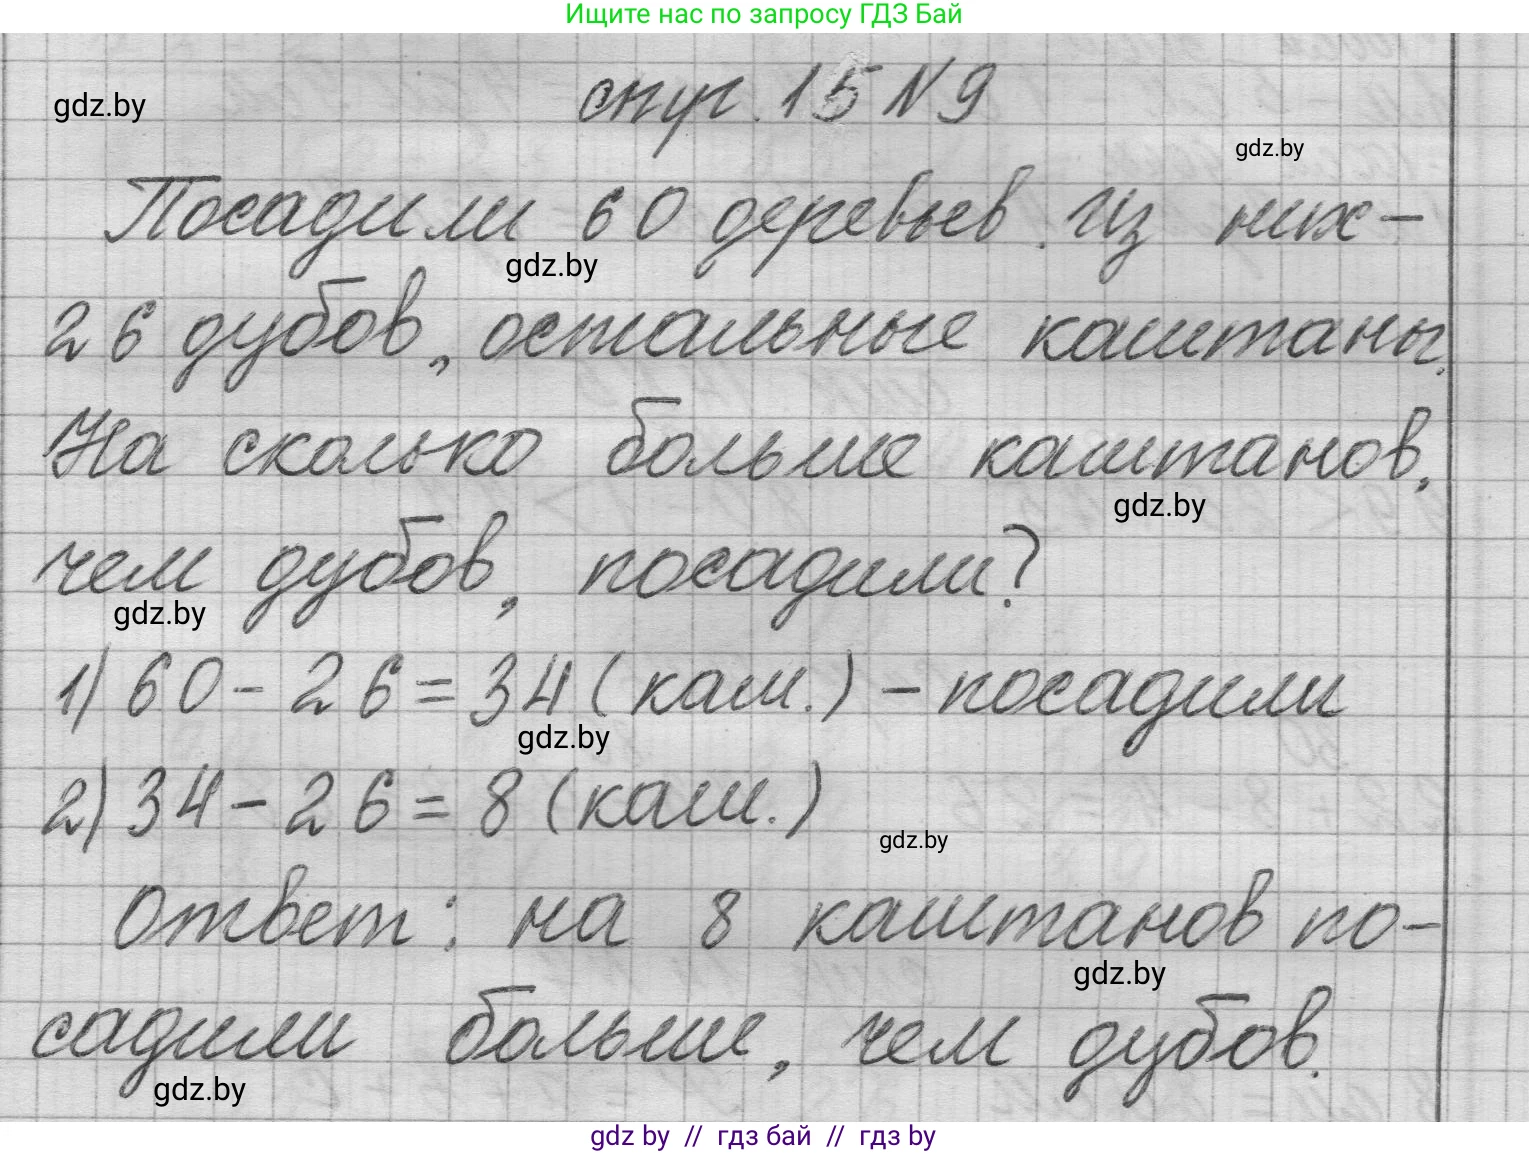 Ищите нас по запросу ГДЗ Бай
стр. 15 N 9
gdz.by
gdz.by
Посадили 60 деревьев. Из них -
gdz.by
26 дубов, остальные каштаны.
На сколько больше каштанов,
gdz.by
чем дубов, посадили?
gdz.by
1) 60 - 26 = 34 (каш.) - посадили
gdz.by
2) 34 - 26 = 8 (каш.)
gdz.by
Ответ: на 8 каштанов по-
gdz.by
садили больше, чем дубов.
gdz.by
gdz by // гдз бай // гдз by